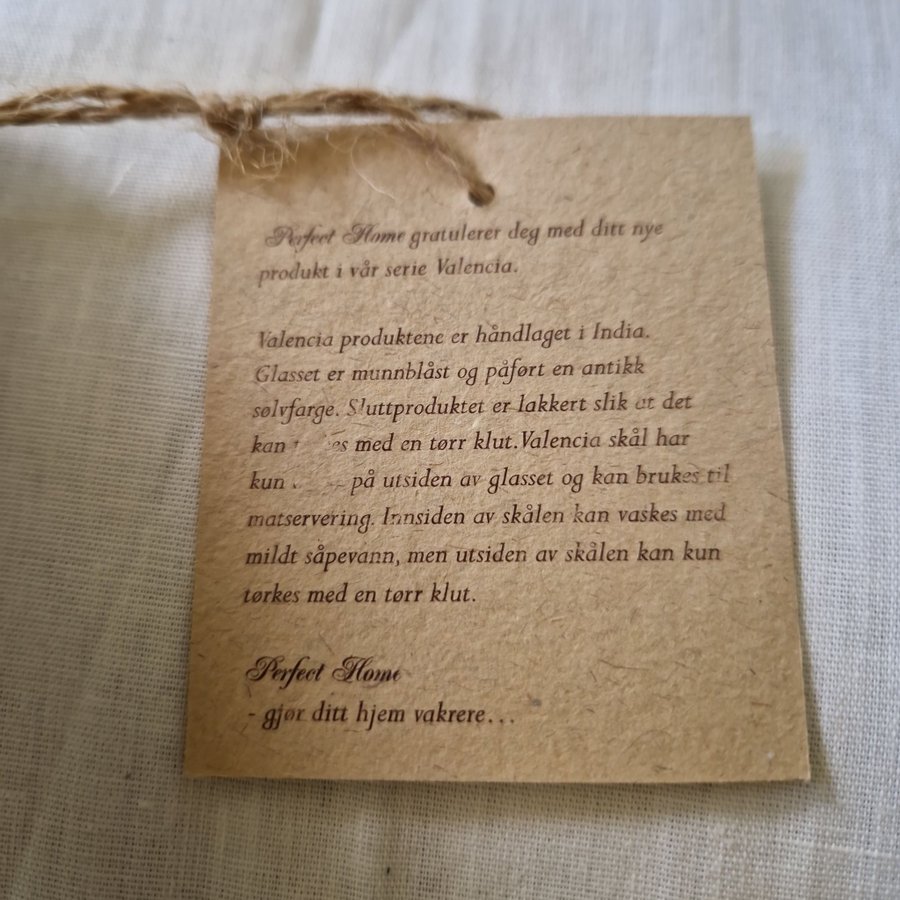 Perfect Home gratulerer deg med ditt nye
produkt i vår serie Valencia.
Valencia produktene er håndlaget i India.
Glasset er munnblåst og påført en antikk
sølvfarge. Sluttproduktet er lakkert slik at det
kan med en tørr klut. Valencia skål har
kun på utsiden av glasset og kan brukes til
matservering. Innsiden av skålen kan vaskes med
mildt såpevann, men utsiden av skålen kan kun
tørkes med en tørr klut.
Perfect Home
- gjør ditt hjem vakrere...